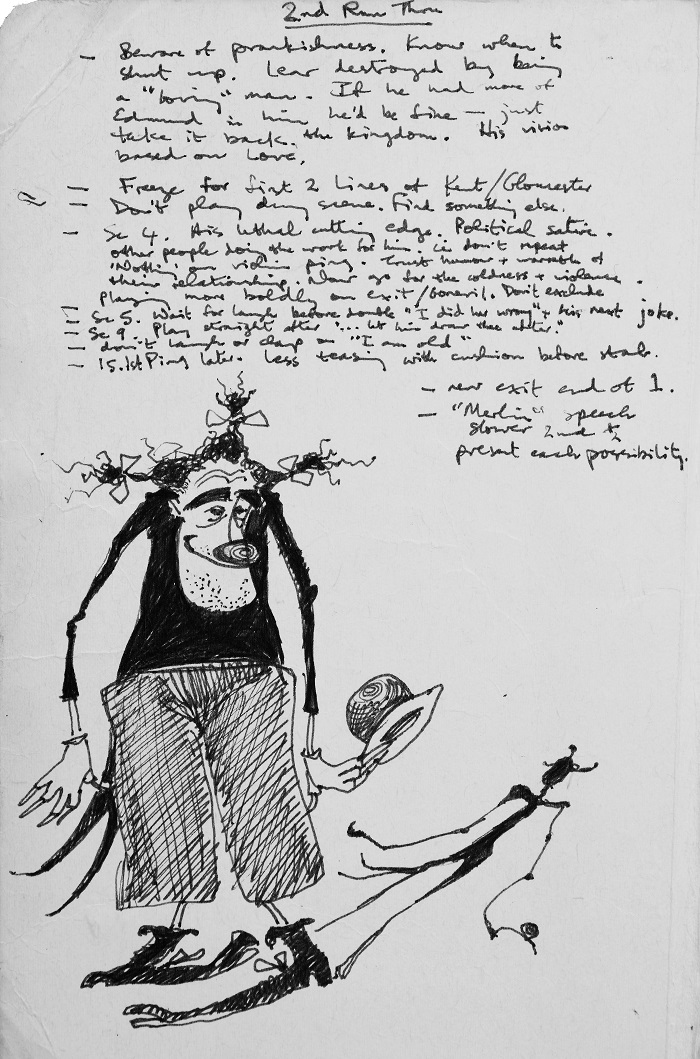 2nd Run Thru
— Beware of prankishness. Know when to
shut up. Lear destroyed by being
a "loving" man. If he had more of
Edmund in him he'd be fine — just
take it back. the kingdom. His vision
based on Love.
— Freeze for first 2 lines of Kent/Gloucester
— Don't play dying scene. Find something else.
— Sc 4. His lethal cutting edge. Political satire.
other people doing the work for him. ie don't repeat
'Nothing' on violin ping. Trust humour + warmth of
their relationship. Now go for the coldness + violence.
Playing more boldly on exit/Goneril. Don't exclude
— Sc 5. Wait for laugh before double "I did her wrong" + his next joke.
— Sc 9. Play straight after "... let him draw the after."
— don't laugh or clap on "I am old"
— 15. 1st Ping later. Less teasing with cushion before stab.
— new exit end of 1.
— "Merlin" speech
slower 2nd ½
present each possibility.